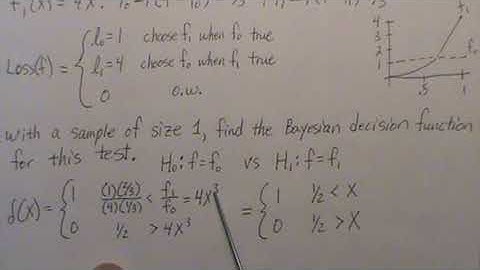 f₁(x) = 4x³
Loss(f) = { l₀=1 choose f₁ when f₀ true
l₁=4 choose f₀ when f₁ true
0 o.w.
4
3
2
1
.5 1
f₁
f₀
with a sample of size 1, find the Bayesian decision function
for this test. H₀: f=f₀ vs H₁: f=f₁
δ(x) = { 1 (1)(2/3)/(4)(1/3) < f₁/f₀ = 4x³ = { 1 1/2 < x
0 1/2 > 4x³ 0 1/2 > x